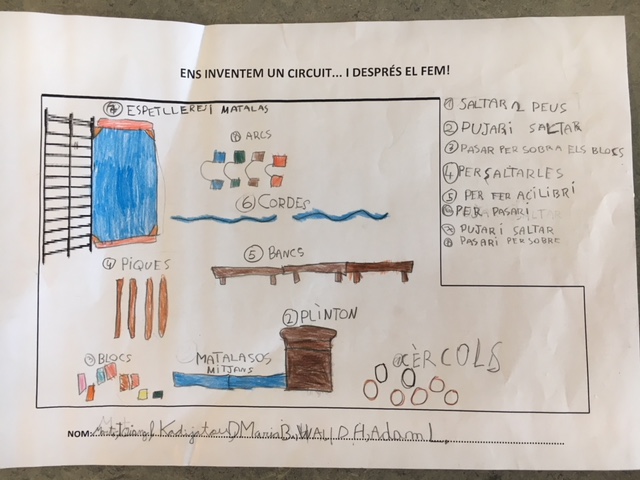 ENS INVENTEM UN CIRCUIT... I DESPRÉS EL FEM!
7 ESPETLLERES I MATALAS
8 ARCS
6 CORDES
5 BANCS
4 PIQUES
2 PLÌNTON
3 BLOCS
MATALASOS
MITJANS
1 CÈRCOLS
1 SALTAR 2 PEUS
2 PUJAR I SALTAR
3 PASAR PER SOBRA ELS BLOCS
4 PER SALTARLES
5 PER FER AÇILIBRI
6 PER PASAR
7 PUJAR I SALTAR
8 PASAR I PER SOBRE
NOM: Kadijatou D Maria B, WALID.H, Adam L.